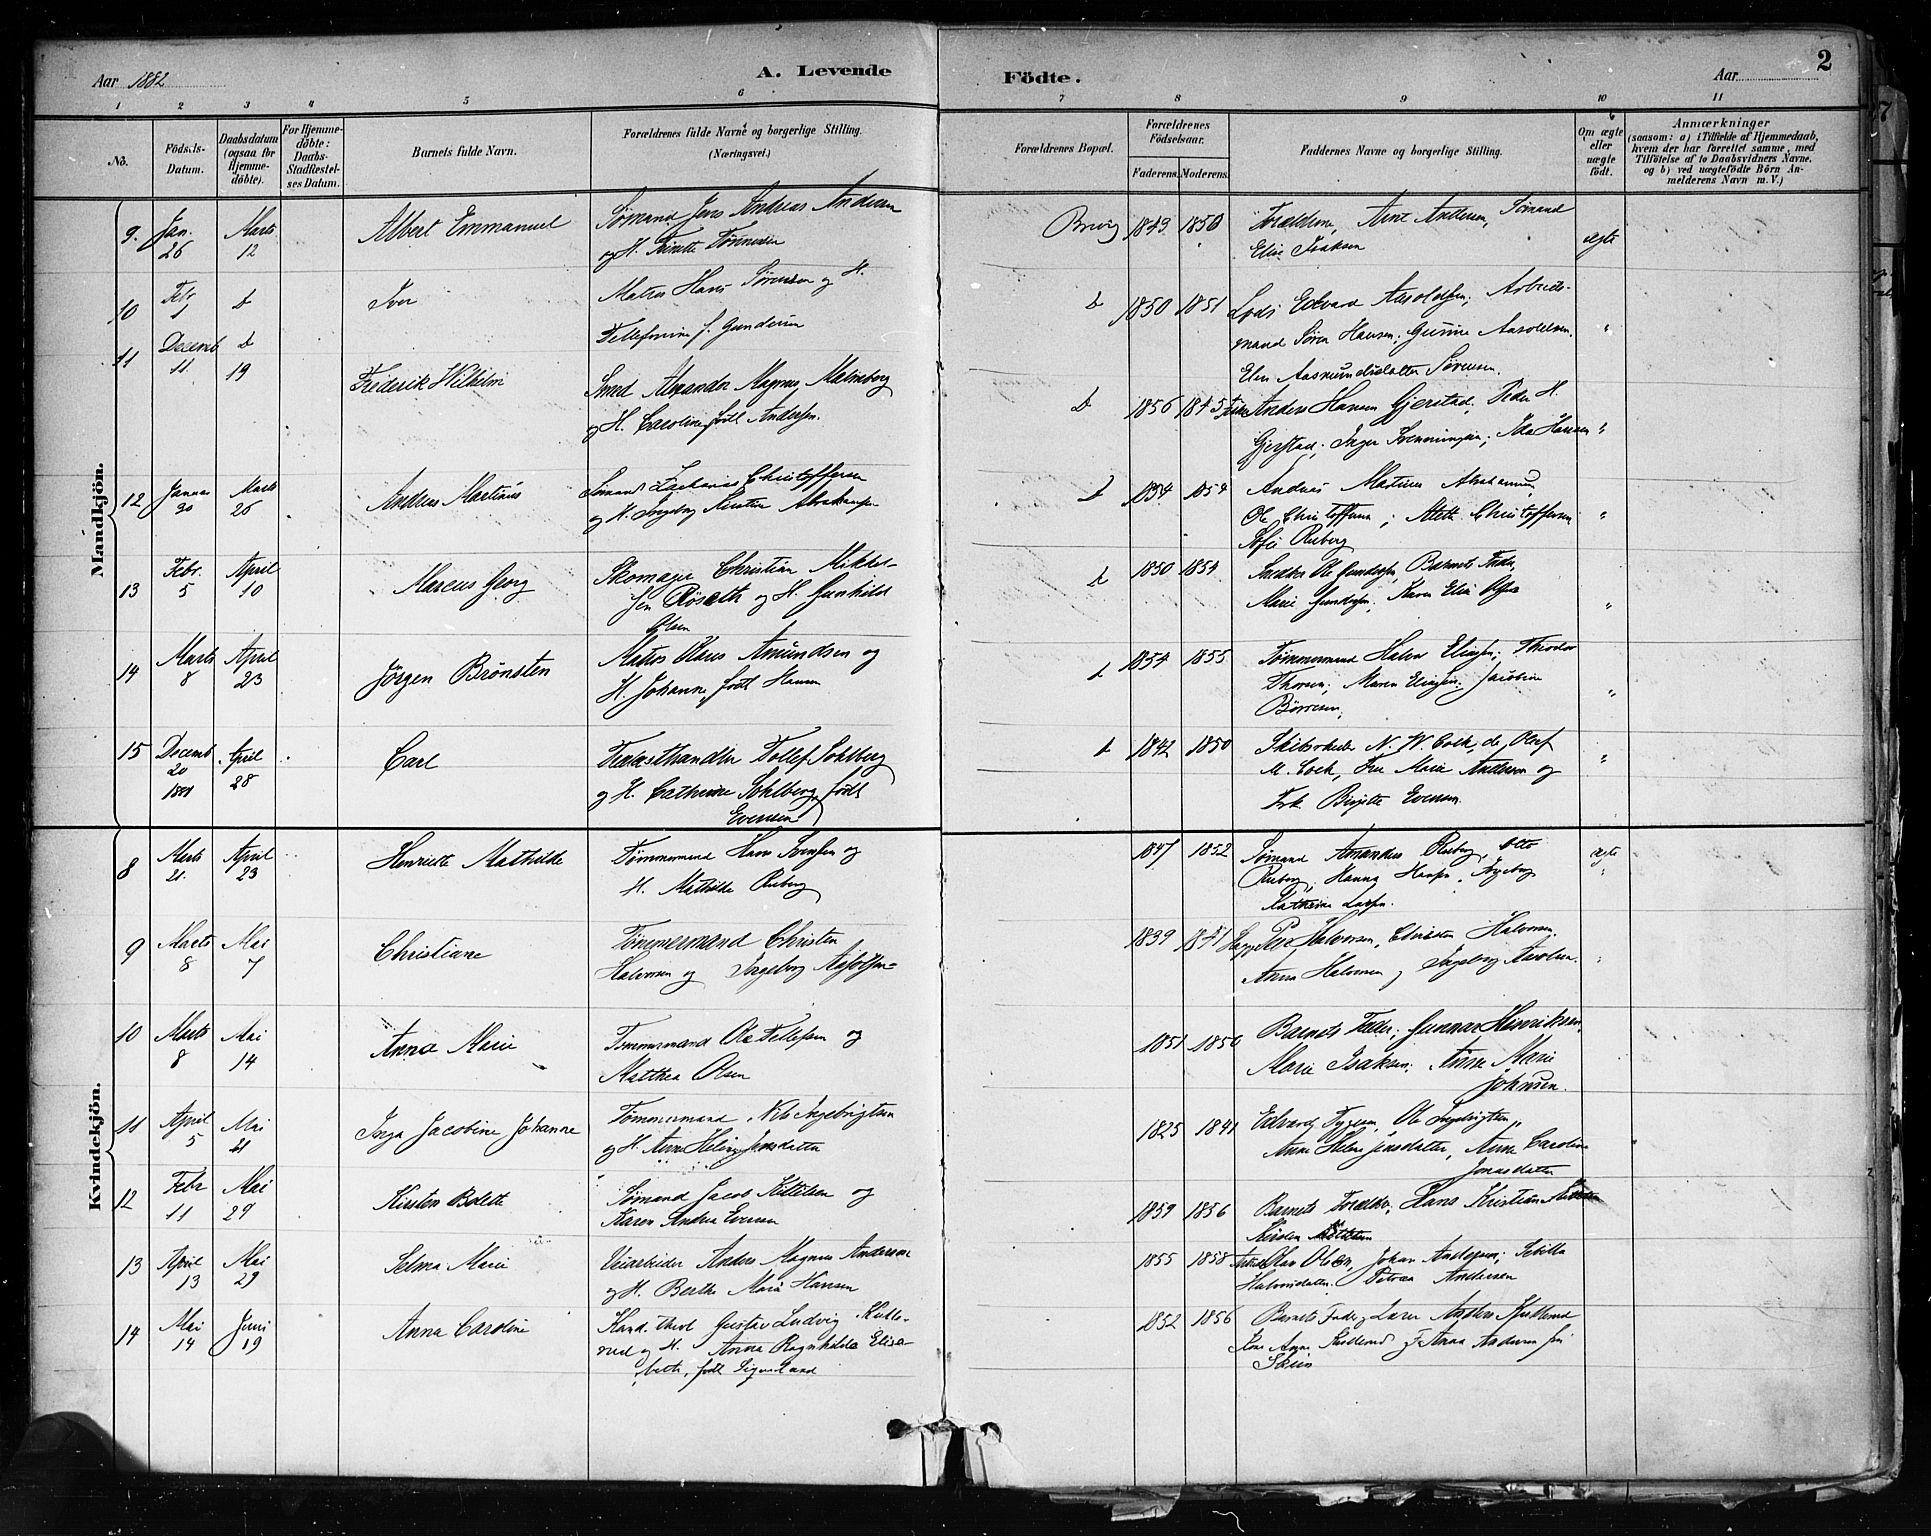 Aar 1882
A. Levende
Födte.
Aar
2
1 2 3 4 5 6 7 8 9 10 11
No.
Födsels-
Datum.
Daabsdatum
(ogsaa for
Hjemme-
döbte).
For Hjemme-
döbte:
Daabs-
Stadfæstel-
ses Datum.
Barnets fulde Navn.
Forældrenes fulde Navne og borgerlige Stilling.
(Næringsvei.)
Forældrenes Bopæl.
Forældrenes
Födselsaar.
Faderens. Moderens.
Faddernes Navne og borgerlige Stilling.
Om ægte
eller
uægte
födt.
Anmærkninger
(saasom: a) i Tilfælde af Hjemmedaab,
hvem der har forrettet samme, med
Tilföielse af to Daabsvidners Navne,
og b) ved uægtefödte Börn An-
melderens Navn m. V.)
Mandkjön.
9. Jan. 26 Marts 12 Albert Emmanuel Sømand Jens Andreas Andersen
og H. Tønnesen
Brevig 1843 1850 Forældrene, Arne Andersen, Sømand
Elise Isaksen ægte
10 Febr. 1 D Iver Matros Hans Sørensen og H.
Tellefine f. Gundersen
D 1850 1851 Lods Edvard Aasoldsen, Arbeids-
mand Søren Hansen; Gurine Aasoldsen,
Elen Aasmundsdatter Sørensen. "
11 Decemb 11 D 19 Frederik Wilhelm Smed Alexander Magnus Malmberg
og H. Caroline, født Andersen.
D 1856 1845 Anders Hansen Gjerstad; Peder H.
Gjerstad; Inger Svenningsen; Ida Hansen "
12 Januar 30 Marts 26 Andreas Martinius Sømand Zacharias Christoffersen
og H. Ingeborg Kirstine Abrahamsen
D 1854 1854 Andreas Martinus Abrahamsen,
Ole Christoffersen; Christoffersen
Sofie Ruberg "
13 Febr. 5 April 10 Marcus Georg Skomager Christian Mikkel-
sen Røseth og H. Gunhild
Olsen
D 1850 1854 Snedker Ole Gundersen, Barnets Fader,
Marie Gundersen; Karen Elise Olsen "
14 Marts 8 April 23 Jörgen Brönsten Matros Olaus Amundsen og
H. Johanne, født Hansen
D 1854 1855 Tømmermand Halvor Eliassen; Theodor
Thorsen; Maren Eliassen; Jacobine
Börresen; "
15 Decemb 20 1881 April 28 Carl Trælasthandler Tollef Sohlberg
og H. Cathrine Sohlberg, født
Evensen
D 1842 1850 Skibsreder N. W. Cock, do Oluf
M. Cock, Fru Marie Andersen og
Frk. Birgitte Evensen. "
Kvindekjön.
8 Marts 21. April 23 Henriette Mathilde Tømmermand Hans Svensen og
H. Mathilde Ruberg
1847 1852 Sømand Amandus Ruberg, Otto
Ruberg, Hanna Hansen, Ingeborg
Kathrine Larsen. ægte
9 Marts 8 Mai 7 Christiane Tømmermand Christen
Halvorsen og Ingeborg Aasolsen
1839 1841 Peder Halvorsen, Christen Halvorsen,
Anne Halvorsen, Ingeborg Aasolsen. "
10 Marts 8 Mai 14 Anna Marie Tømmermand Ole Tellefsen og
Matthea Olsen
1851 1850 Barnets Fader; Gunnar Henriksen,
Marie Isaksen; Anne Marie
Johnsen.
11 April 5 Mai 21 Inga Jacobine Johanne Tømmermand Nils Ingebrigtsen
og H. Anne Helene Jonsdatter
1825 1841 Edvard Tygesen, Ole Ingebrigtsen,
Anne Helene Jonsdatter, Anne Caroline
Jonasdatter
12 Febr 11 Mai 29 Kirsten Bolette Sømand Jacob Kittilsen og
Karen Andrea Evensen
1859 1856 Barnets Forældre, Hans Kristian
Kirsten Kittilsen
13 April 13 Mai 29 Selma Marie Veiarbeider Anders Magnus Andersen
og H. Berthe Maria Hansen
1855 1858 Olav Olsen, Johan Andersen; Sibilla
Halvorsdatter. Petrea Andersen
14 Mai 14 Juni 19 Anna Caroline Kand. theol Gustav Ludvig Kulle-
rud og H. Anna Ragnhilda Elisa-
beth, født Sigveland
1852 1856 Barnets Fader, Lærer Anders Kullerud
Kone Anne Kullerud, F. Anna Andersen fri
Skien